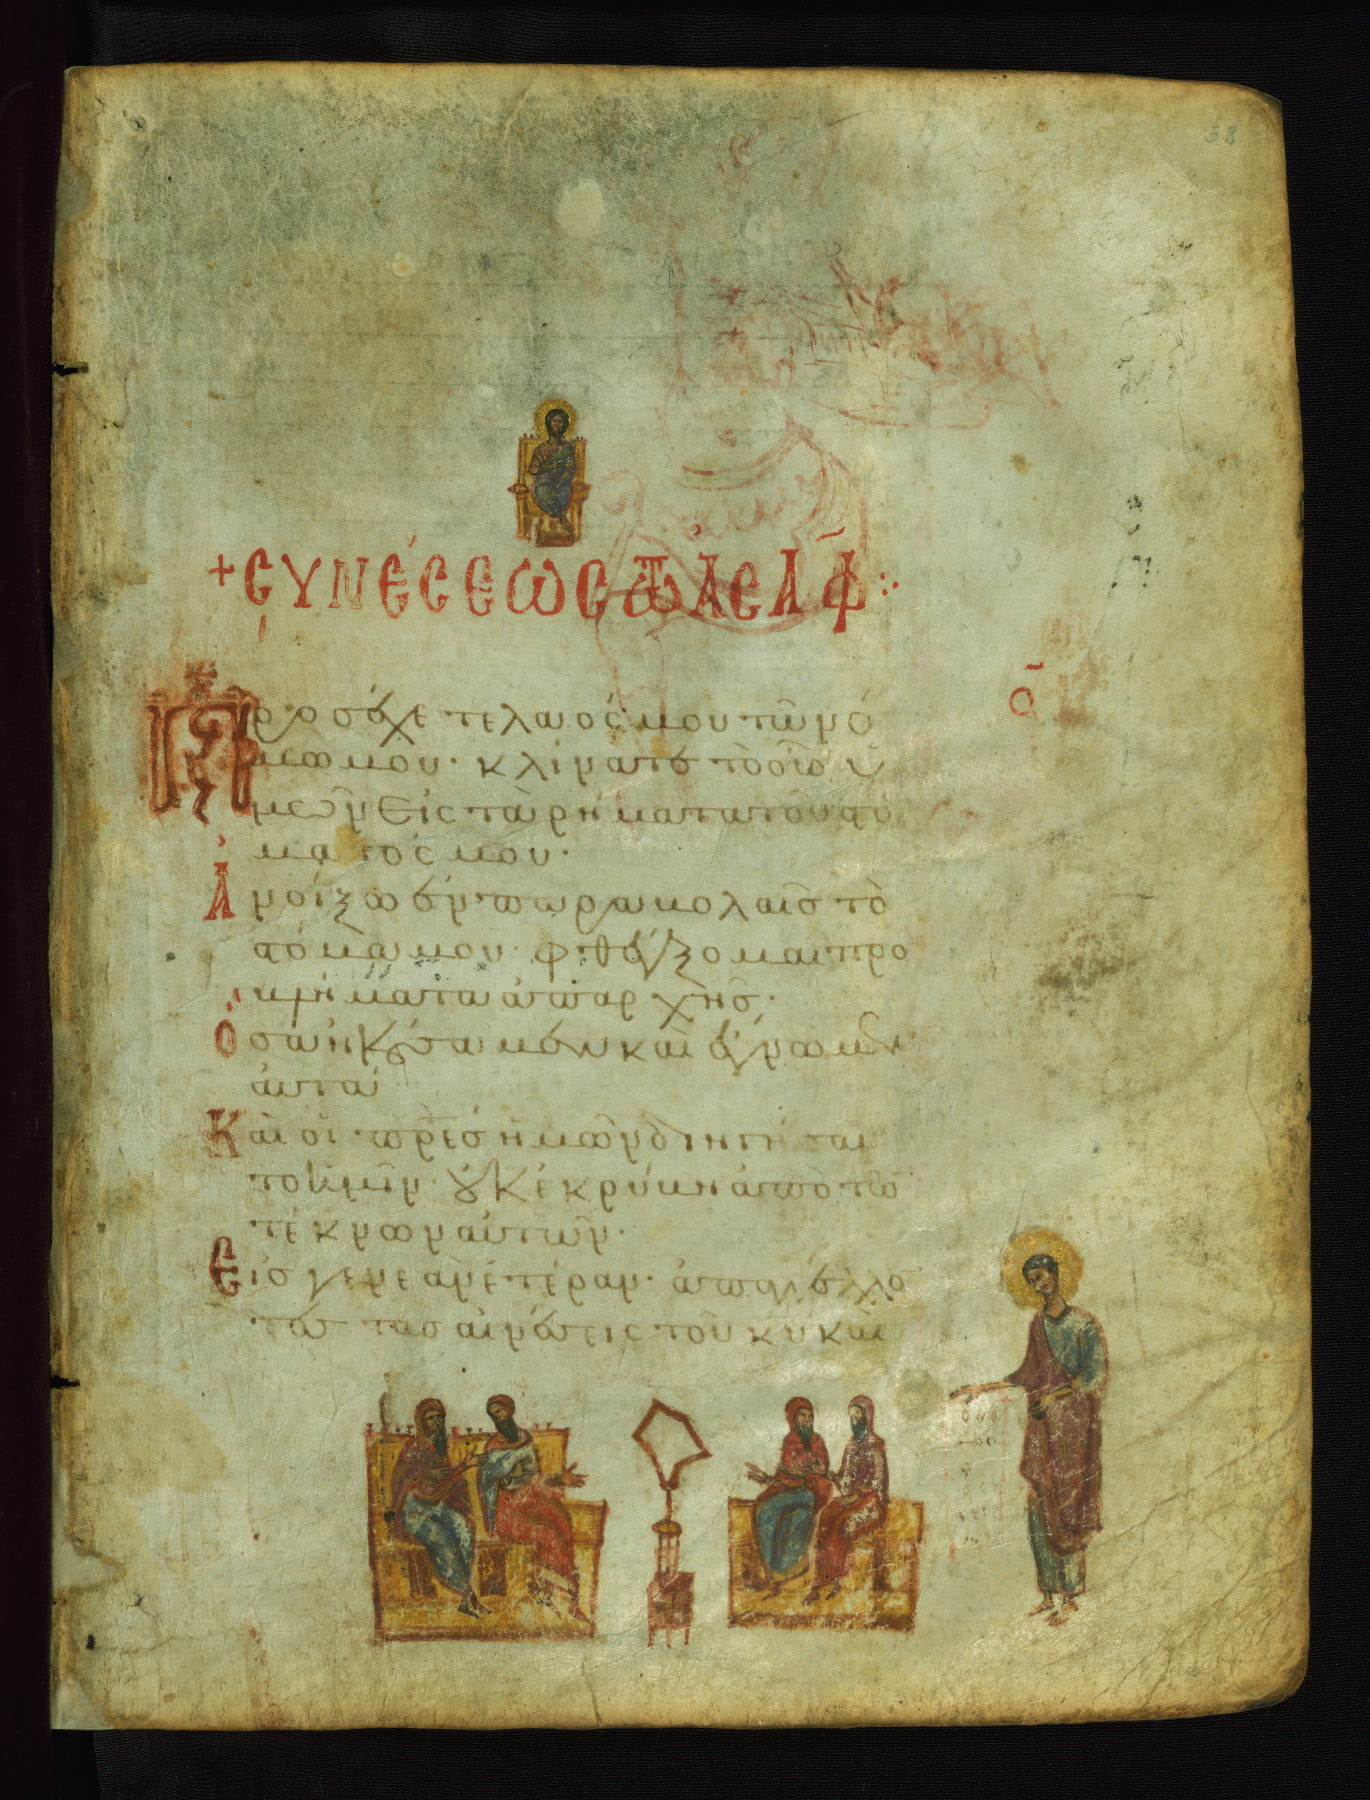 38
+ ϹΥΝΈϹΕΩϹ ΤΩ ἈϹΆΦ
ο̄
Προσέχετε λαὸς μου τῶ νό
μω μου· κλίνατε τὸ οὖς ὑ
μῶν εἰς τὰ ρήματα τοῦ στό
ματός μου·
Ἀνοίξω ἐν παραβολαῖς τὸ
στόμα μου φθέγξομαι προ
βλήματα ἀπαρχῆς·
Ὅσα ἠκούσαμεν καὶ ἔγνωμεν
αὐτά
Καὶ οἱ πρ̅ες ἡμῶν διηγή
ἡμῖν· οὐκ ἐκρύβη ἀπὸ τῶ
τέκνων αὐτῶν·
Εἰς γενεὰν ἑτέραν· ἀπαγγέλλο
τες τὰς αἰνέσεις τοῦ κ̅υ καὶ